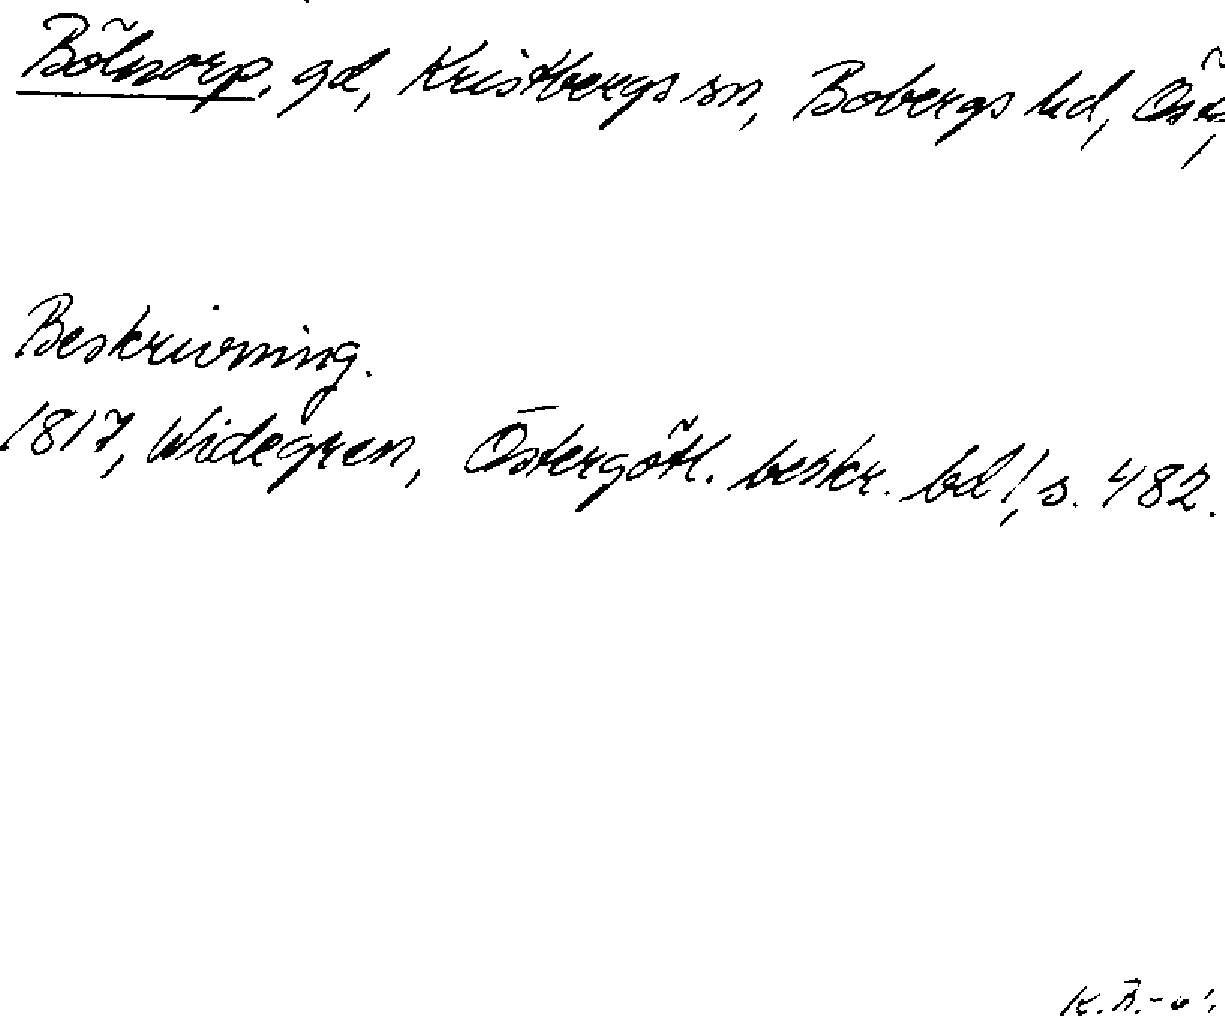 Bölnorp, gd, Kristbergs sn, Bobergs hd, Ög,
Beskrivning.
1817, Widegren, Östergötl. beskr. bd 1, s. 482.